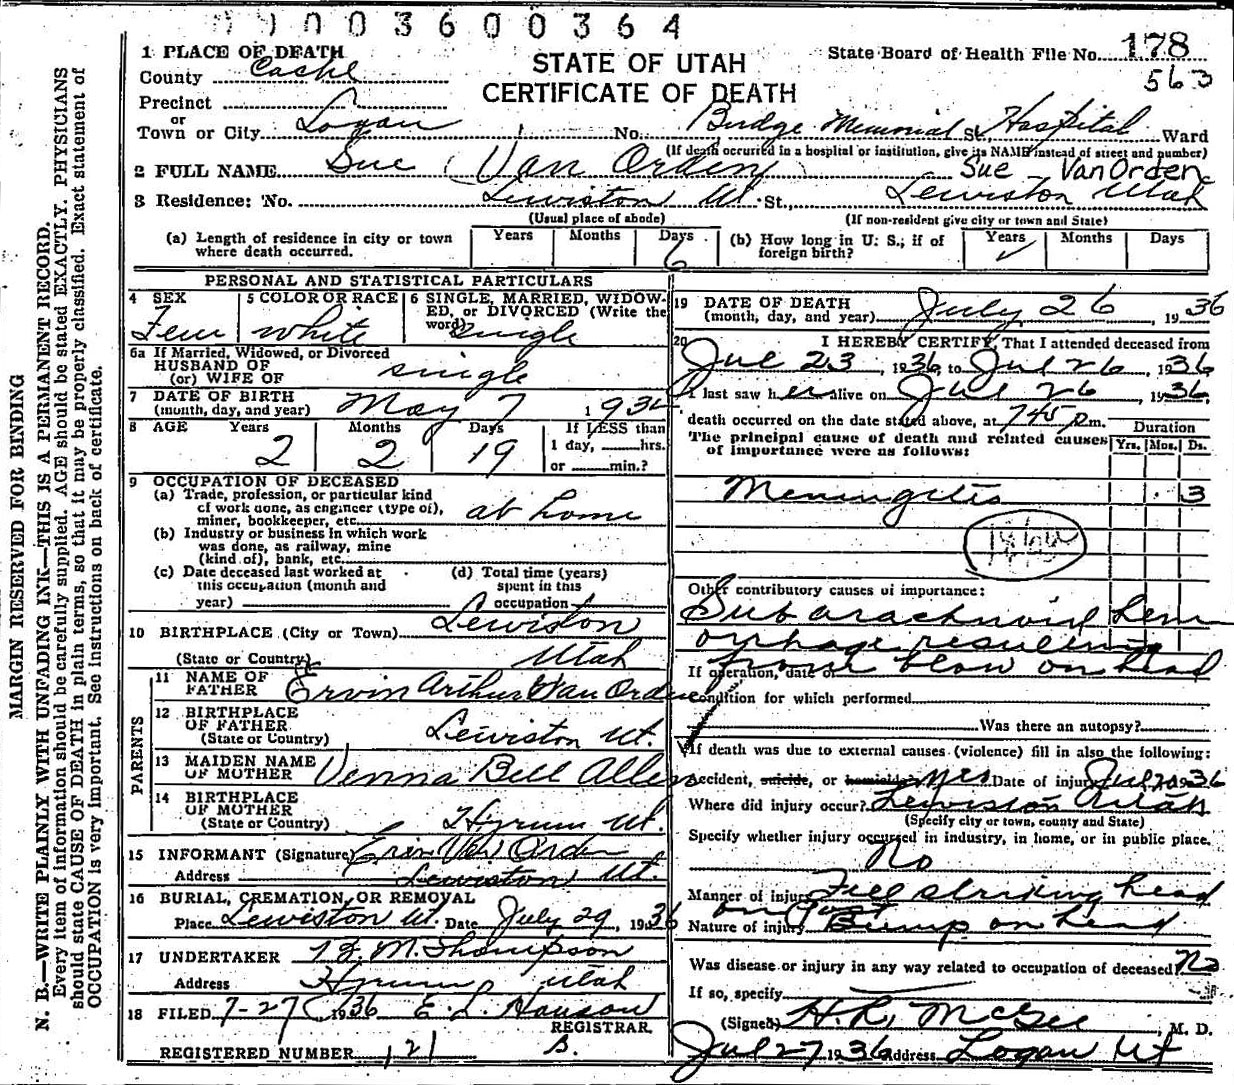 003600364
1 PLACE OF DEATH
County Cache
Precinct
or
Town or City Logan No. Budge Memorial St., Hospital Ward
(If death occurred in a hospital or institution, give its NAME instead of street and number)
STATE OF UTAH
CERTIFICATE OF DEATH
State Board of Health File No. 178
563
2 FULL NAME Sue Van Orden Sue - Van Orden
3 Residence: No. Lewiston Ut. St., Lewiston Utah
(Usual place of abode) (If non-resident give city or town and State)
(a) Length of residence in city or town where death occurred. Years Months Days 6
(b) How long in U. S., if of foreign birth? Years Months Days
PERSONAL AND STATISTICAL PARTICULARS
4 SEX Fem
5 COLOR OR RACE white
6 SINGLE, MARRIED, WIDOWED, or DIVORCED (Write the word) single
6a If Married, Widowed, or Divorced
HUSBAND OF
(or) WIFE OF single
7 DATE OF BIRTH
(month, day, and year) May 7 193
8 AGE Years 2 Months 2 Days 19
If LESS than
1 day, hrs.
or min.?
9 OCCUPATION OF DECEASED
(a) Trade, profession, or particular kind
of work done, as engineer (type of),
miner, bookkeeper, etc. at home
(b) Industry or business in which work
was done, as railway, mine
(kind of), bank, etc.
(c) Date deceased last worked at
this occupation (month and
year)
(d) Total time (years)
spent in this
occupation
10 BIRTHPLACE (City or Town) Lewiston
(State or Country) Utah
PARENTS
11 NAME OF
FATHER Ervin Arthur Van Orden
12 BIRTHPLACE
OF FATHER
(State or Country) Lewiston Ut.
13 MAIDEN NAME
OF MOTHER Venna Bell Allen
14 BIRTHPLACE
OF MOTHER
(State or Country) Hyrum Ut.
15 INFORMANT (Signature) Van Orden
Address Lewiston Ut.
16 BURIAL, CREMATION, OR REMOVAL
Place Lewiston Ut. Date July 29, 1936
17 UNDERTAKER M. Thompson
Address Hyrum Utah
18 FILED 7-27 1936 E. L. Hanson
REGISTRAR.
REGISTERED NUMBER 121 B.
19 DATE OF DEATH
(month, day, and year) July 26 1936
20 I HEREBY CERTIFY, That I attended deceased from
Jul 23, 1936, to Jul 26, 1936
I last saw her alive on Jul 26, 1936,
death occurred on the date stated above, at 745 p.m.
The principal cause of death and related causes
of importance were as follows:
Duration
Yrs. Mos. Ds.
Meningitis 3
Other contributory causes of importance:
Subarachnoid hem
orrhage resulting
from blow on head
If operation, date of
Condition for which performed
Was there an autopsy?
If death was due to external causes (violence) fill in also the following:
Accident, suicide, or homicide? yes Date of injury Jul 20 1936
Where did injury occur? Lewiston Utah
(Specify city or town, county and State)
Specify whether injury occurred in industry, in home, or in public place.
No
Manner of injury Fell striking head
on post
Nature of injury Bump on head
Was disease or injury in any way related to occupation of deceased? No
If so, specify
(Signed) H. R. McGee, M. D.
Jul 27 1936 Address Logan Ut
MARGIN RESERVED FOR BINDING
N. B.—WRITE PLAINLY WITH UNFADING INK—THIS IS A PERMANENT RECORD.
Every item of information should be carefully supplied. AGE should be stated EXACTLY. PHYSICIANS
should state CAUSE OF DEATH in plain terms, so that it may be properly classified. Exact statement of
OCCUPATION is very important. See instructions on back of certificate.